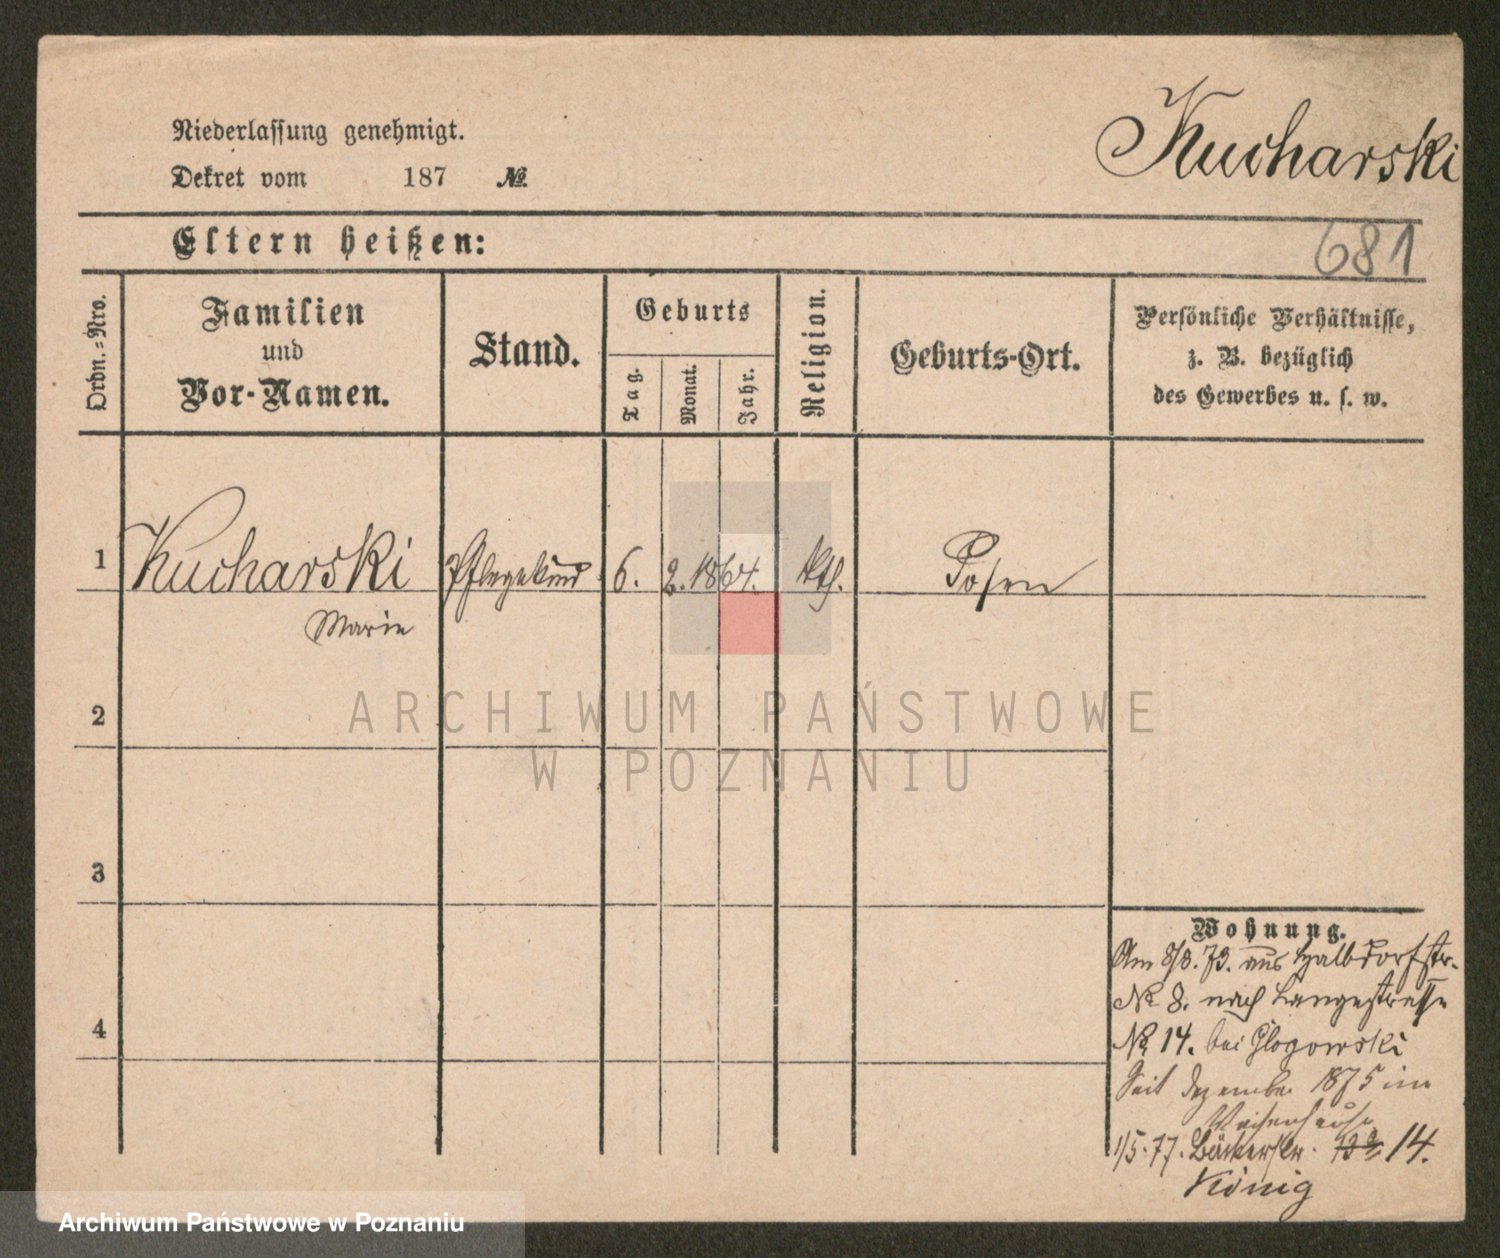 Kucharski
Niederlassung genehmigt.
Dekret vom 187 No.
681
Eltern heißen:
Ordn.=Nro.
Familien
und
Vor-Namen.
Stand.
Geburts
Tag.
Monat.
Jahr.
Religion.
Geburts-Ort.
Persönliche Verhältnisse,
z. B. bezüglich
des Gewerbes u. s. w.
1 Kucharski Pflegekind 6. 2. 1864. kth. Posen
Marie
2
ARCHIWUM PAŃSTWOWE
W POZNANIU
3
4
Wohnung.
Am 8/8. 73. aus Halbdorfstr.
No 8. nach Langestrasse
No 14. bei Glogowski
Seit Dezember 1875 im
Waisenhause
1/5. 77. Bäckerstr. 14.
König
Archiwum Państwowe w Poznaniu